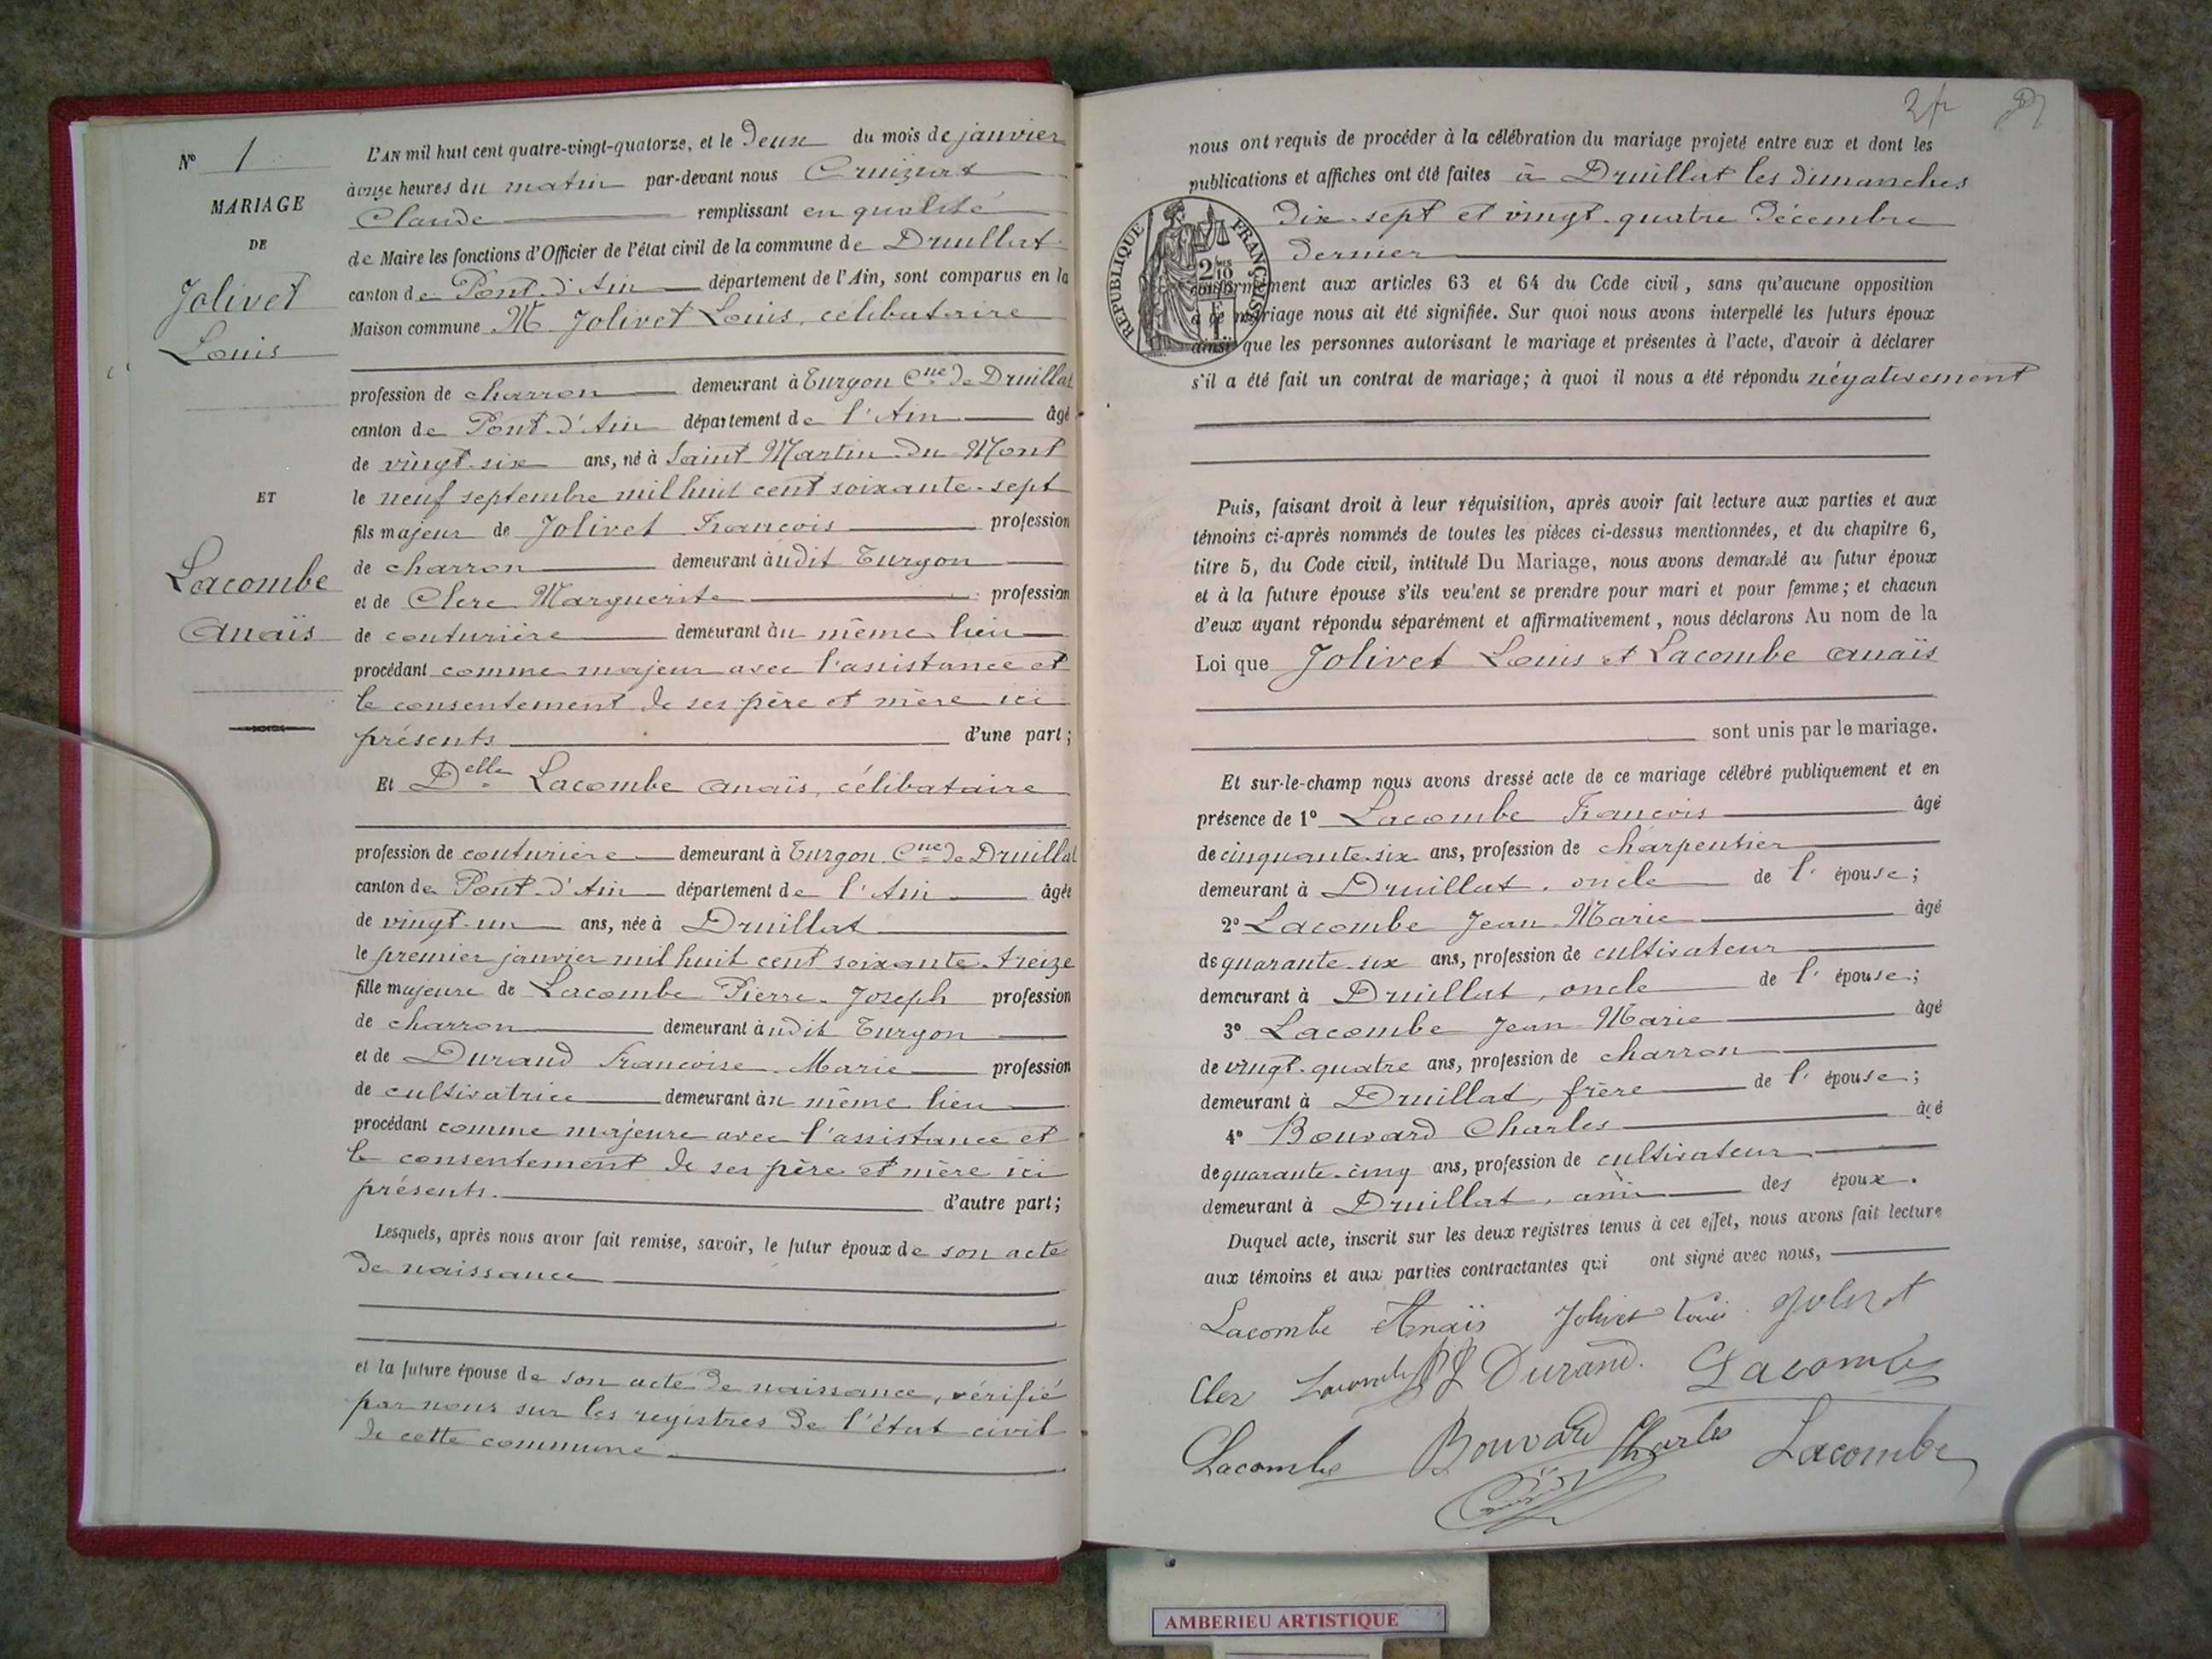 N° 1
MARIAGE
DE
Jolivet
Louis
ET
Lacombe
Anaïs
L'AN mil huit cent quatre-vingt-quatorze, et le deux du mois de janvier
à onze heures du matin par-devant nous Cruiziat
Claude remplissant en qualité
de Maire les fonctions d'Officier de l'état civil de la commune de Druillat
canton de Pont-d'Ain département de l'Ain, sont comparus en la
Maison commune M. Jolivet Louis, célibataire
profession de charron demeurant à Turgon Cne de Druillat
canton de Pont-d'Ain département de l'Ain âgé
de vingt-six ans, né à Saint Martin du Mont
le neuf septembre mil huit cent soixante-sept
fils majeur de Jolivet François profession
de charron demeurant àudit Turgon
et de Clerc Marguerite profession
de couturière demeurant àu même lieu
procédant comme majeur avec l'assistance et
le consentement de ses père et mère ici
présents d'une part;
Et Delle Lacombe Anaïs, célibataire
profession de couturière demeurant à Turgon Cne de Druillat
canton de Pont-d'Ain département de l'Ain âgée
de vingt-un ans, née à Druillat
le premier janvier mil huit cent soixante-treize
fille majeure de Lacombe Pierre-Joseph profession
de charron demeurant àudit Turgon
et de Durand Françoise-Marie profession
de cultivatrice demeurant àu même lieu
procédant comme majeure avec l'assistance et
le consentement de ses père et mère ici
présents. d'autre part;
Lesquels, après nous avoir fait remise, savoir, le futur époux de son acte
de naissance
et la future épouse de son acte de naissance, vérifié
par nous sur les registres de l'état civil
de cette commune
2 fr
nous ont requis de procéder à la célébration du mariage projeté entre eux et dont les
publications et affiches ont été faites à Druillat les dimanches
dix-sept et vingt-quatre décembre
dernier
RÉPUBLIQUE FRANÇAISE
2/10
conformément aux articles 63 et 64 du Code civil, sans qu'aucune opposition
à ce mariage nous ait été signifiée. Sur quoi nous avons interpellé les futurs époux
ainsi que les personnes autorisant le mariage et présentes à l'acte, d'avoir à déclarer
s'il a été fait un contrat de mariage; à quoi il nous a été répondu négativement
Puis, faisant droit à leur réquisition, après avoir fait lecture aux parties et aux
témoins ci-après nommés de toutes les pièces ci-dessus mentionnées, et du chapitre 6,
titre 5, du Code civil, intitulé Du Mariage, nous avons demandé au futur époux
et à la future épouse s'ils veulent se prendre pour mari et pour femme; et chacun
d'eux ayant répondu séparément et affirmativement, nous déclarons Au nom de la
Loi que Jolivet Louis et Lacombe Anaïs
sont unis par le mariage.
Et sur-le-champ nous avons dressé acte de ce mariage célébré publiquement et en
présence de 1° Lacombe François âgé
de cinquante-six ans, profession de charpentier
demeurant à Druillat, oncle de l'épouse;
2° Lacombe Jean-Marie âgé
de quarante-six ans, profession de cultivateur
demeurant à Druillat, oncle de l'épouse;
3° Lacombe Jean-Marie âgé
de vingt-quatre ans, profession de charron
demeurant à Druillat, frère de l'épouse;
4° Bouvard Charles âgé
de quarante-cinq ans, profession de cultivateur
demeurant à Druillat, ami des époux.
Duquel acte, inscrit sur les deux registres tenus à cet effet, nous avons fait lecture
aux témoins et aux parties contractantes qui ont signé avec nous,
Lacombe Anaïs Jolivet Louis Jolivet
Cler Lacombe Durand. Lacombe
Lacombe Bouvard Charles Lacombe
AMBERIEU ARTISTIQUE